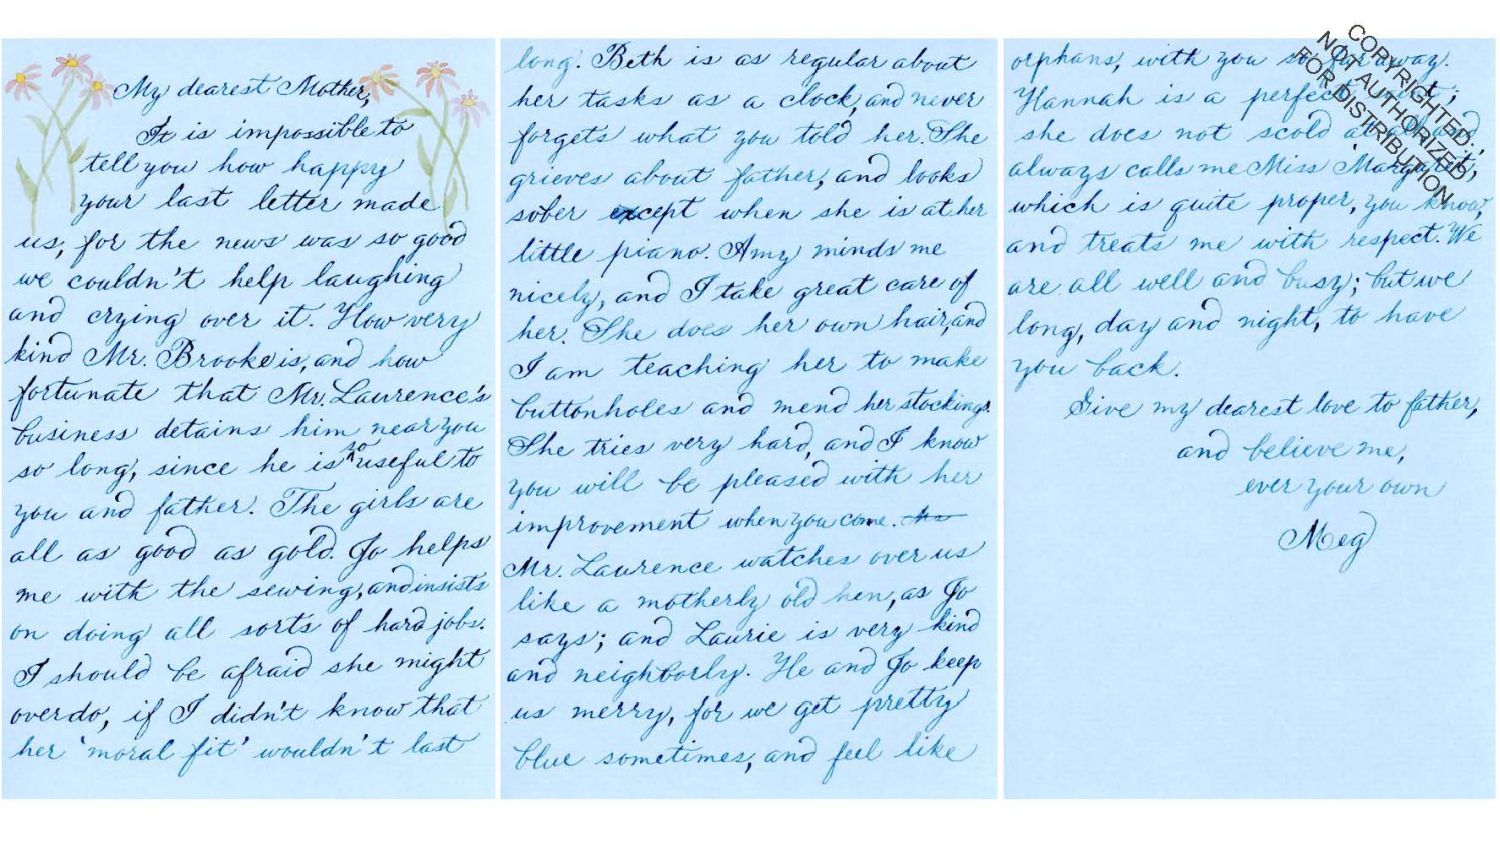 My dearest Mother,
It is impossible to
tell you how happy
your last letter made
us, for the news was so good
we couldn't help laughing
and crying over it. How very
kind Mr. Brooke is, and how
fortunate that Mr. Laurence's
business detains him near you
so long, since he is so useful to
you and father. The girls are
all as good as gold. Jo helps
me with the sewing, and insists
on doing all sorts of hard jobs.
I should be afraid she might
overdo, if I didn't know that
her 'moral fit' wouldn't last
long. Beth is as regular about
her tasks as a clock, and never
forgets what you told her. She
grieves about father, and looks
sober except when she is at her
little piano. Amy minds me
nicely, and I take great care of
her. She does her own hair, and
I am teaching her to make
buttonholes and mend her stockings.
She tries very hard, and I know
you will be pleased with her
improvement when you come.
Mr. Laurence watches over us
like a motherly old hen, as Jo
says; and Laurie is very kind
and neighborly. He and Jo keep
us merry, for we get pretty
blue sometimes, and feel like
orphans, with you so far away.
Hannah is a perfect
she does not scold at all, and
always calls me Miss 'Margaret,'
which is quite proper, you know,
and treats me with respect. We
are all well and busy; but we
long, day and night, to have
you back.
Give my dearest love to father,
and believe me,
ever your own
Meg
COPYRIGHTED.
NOT AUTHORIZED
FOR DISTRIBUTION